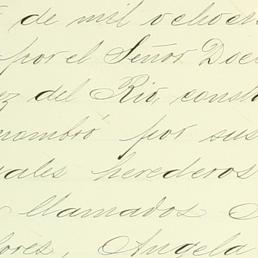 de mil ochoc
por el Señor Doc
ez del Rio, const
nombró por sus
uales herederos
llamados
lores, Angela